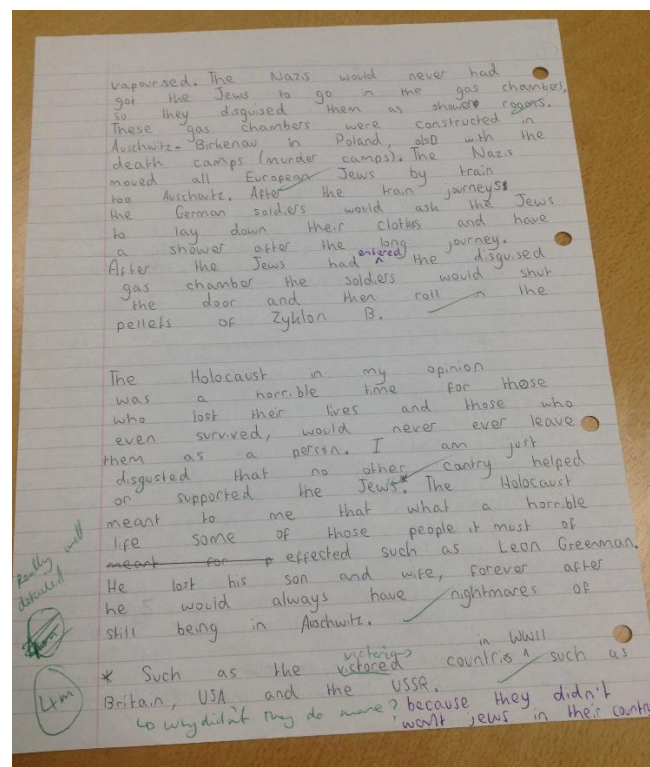 vapoursed. The Nazis would never had
got the Jews to go in the gas chambers,
so they disguised them as shower rooms.
These gas chambers were constructed in
Auschwitz-Birkenau in Poland, also with the
death camps (murder camps). The Nazis
moved all European Jews by train
too Auschwitz. After the train journeys
the German soldiers would ask the Jews
to lay down their cloths and have
a shower after the long journey.
After the Jews had entered the disguised
gas chamber the soldiers would shut
the door and then roll in the
pellets of Zyklon B.
The Holocaust in my opinion
was a horrible time for those
who lost their lives and those who
even survived, would never ever leave
them as a person. I am just
disgusted that no other contry helped
or supported the Jews*. The Holocaust
meant to me that what a horrible
life some of those people it must of
meant for effected such as Leon Greenman.
He lost his son and wife, forever after
he would always have nightmares of
still being in Auschwitz.
Really well
detailed
* Such as the vistored victorious countris in WWII such as
Britain, USA and the USSR.
why didn't they do more? because they didn't
want jews in their country